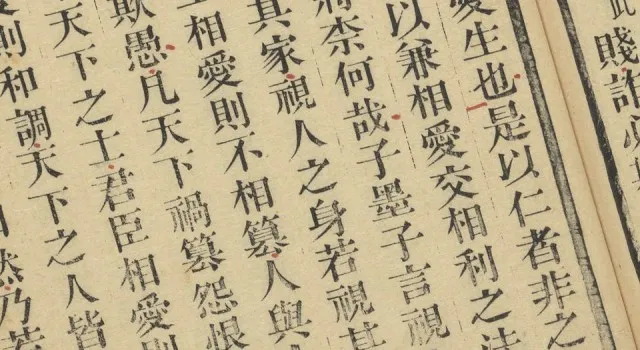 賤詐必
愛生也是以仁者非之
以兼相愛交相利之法
將柰何哉子墨子言視
其家視人之身若視其
相愛則不相篡人與
欺愚凡天下禍篡怨恨
天下之士君臣相愛則
則和調天下之人皆
然乃若